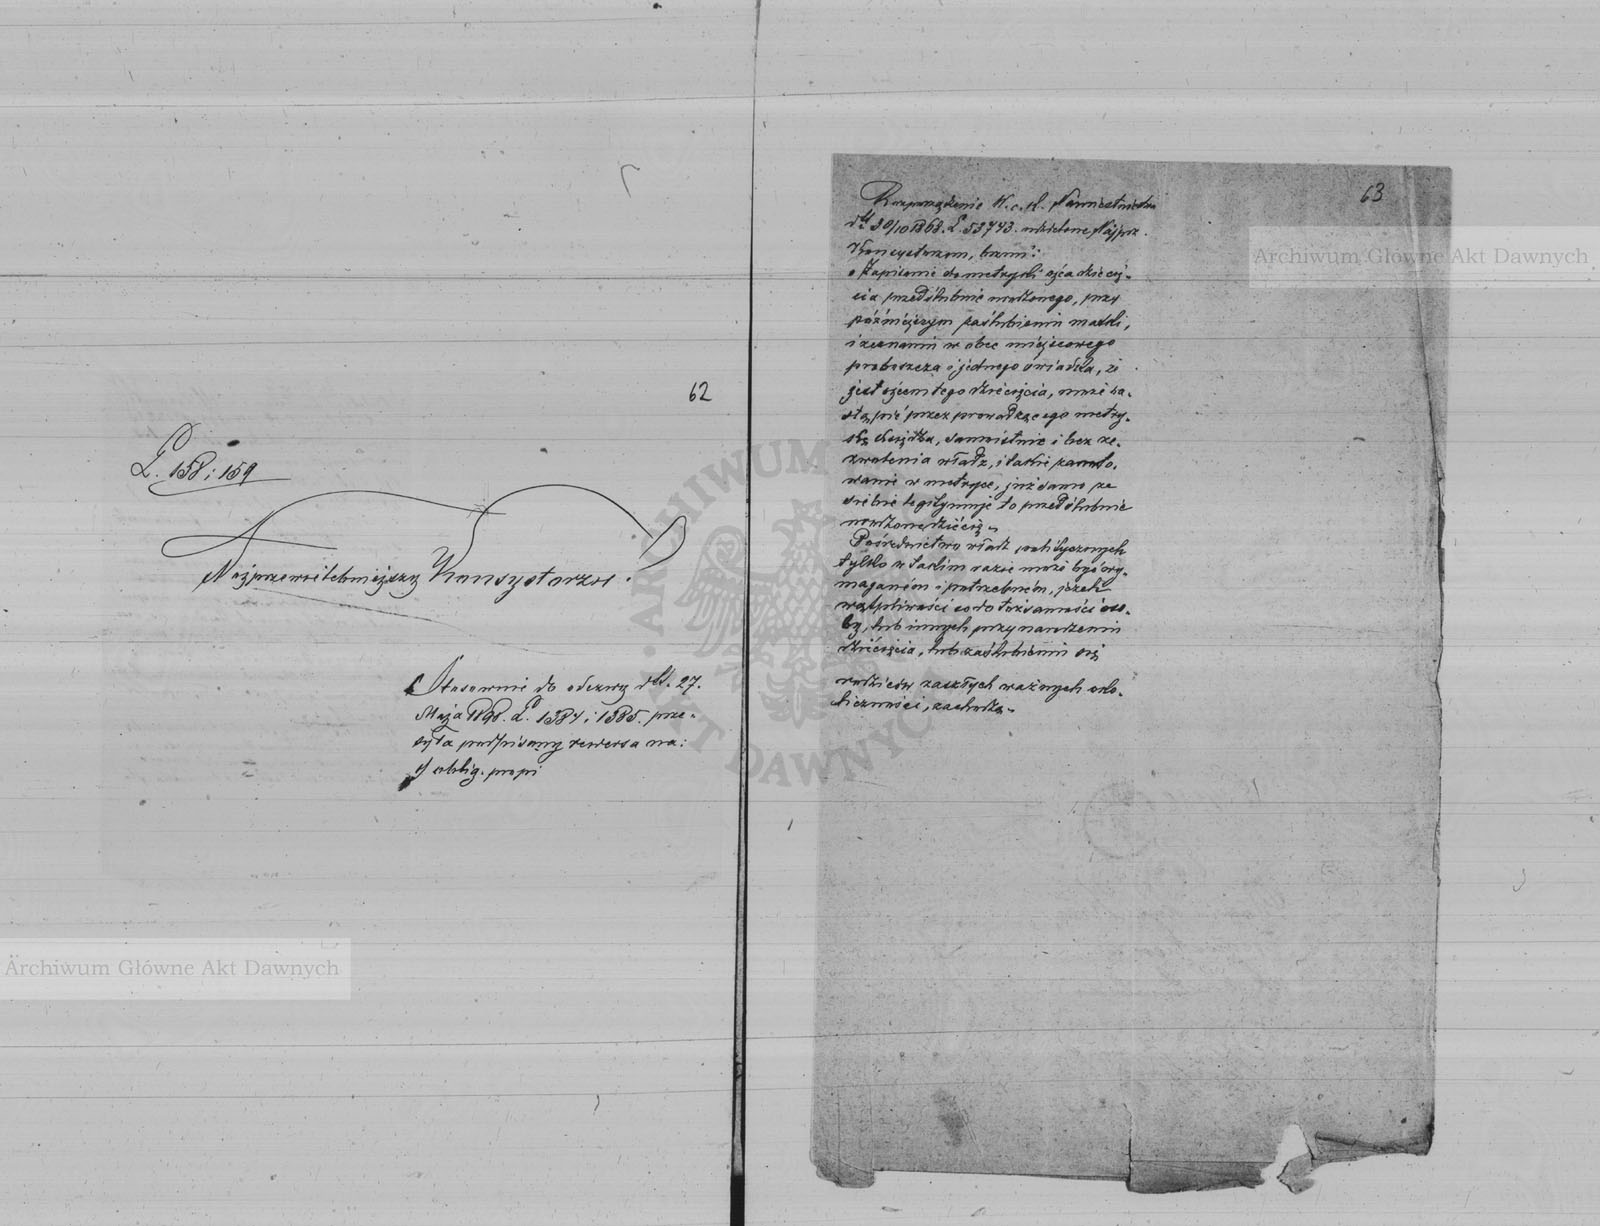 62
L. 158 i 159
Najprzewielebniejszy Konsystorzu!
Stosownie do odezwy dto. 27.
Maja 1898. L. 1384 i 1385. prze-
syła podpisany rewersa na:
obblig. propi
63
Rozporządzenie K. c. K. Namiestnictwa
dto 30/10 1868. L. 53743. udzielone Najprz.
Konsystorzom, brzmi:
„Zapisanie do metryki ojca dziecię-
cia przedślubnie urodzonego, przy
późniejszym zaślubieniu matki,
i zeznaniu w obec miejscowego
proboszcza i jednego świadka, że
jest ojcem tego dziecięcia, może na-
stąpić przez prowadzącego metry-
kę księdza, samoistnie i bez ze-
zwolenia władz, i takie zanoto-
wanie w metryce, już samo ze
siebie legitymuje to przedślubnie
urodzone dziecię„
Pośrednictwo władz politycznych
tylko w takim razie może być wy-
maganém i potrzebném, jeżeli
wątpliwości co do tożsamości oso-
by, lub innych przy narodzeniu
dziecięcia, lub zaślubieniu się
rodziców zaszłych ważnych oko-
liczności, zachodzą„
Archiwum Główne Akt Dawnych
Archiwum Główne Akt Dawnych
ARCHIWUM
AKT DAWNYCH